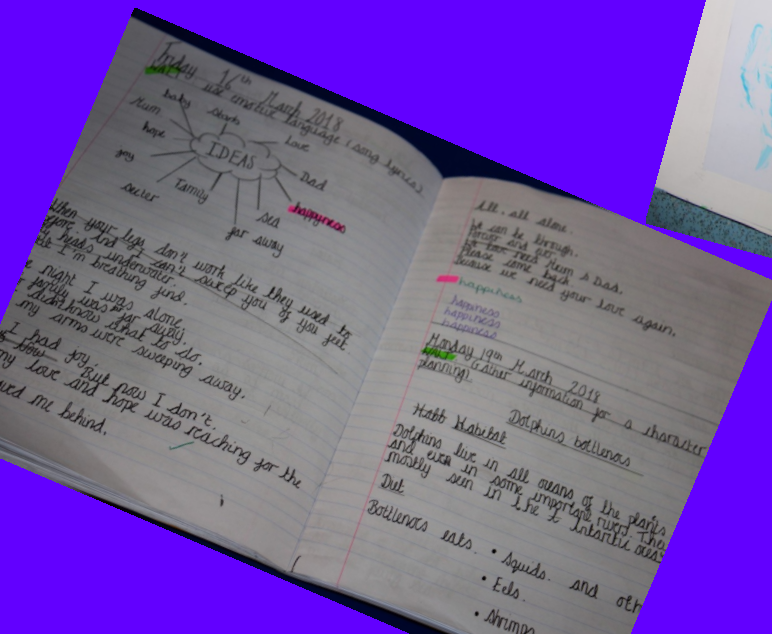 Friday 16th March 2018
use emotive language (song lyrics)
baby
stars
Mum
Love
hope
IDEAS
Dad
joy
secter
family
happyness
sea
far away
when your legs don't work like they used to
before. And I can't sweep you of you feet
heads underwater.
I'm breathing find.
night I was alone,
family was far away.
didn't know what to do.
my arms were swaping away.
I had joy. But now I don't.
my love and hope was reaching for the
me behind.
All, all alone.
be through.
need Mum & Dad.
Please come back
because we need your love again.
happiness
happiness
happiness
happiness
Monday 19th March 2018
Gather information for a character
planning)
Dolphins bottlenors
Habt Habitat
Dolphins live in all oceans of the plants
and even in some important rivers. They
mostly seen in the Antartic ocean
Diet
Bottlenors eats.
• Squids. and oth
• Eels.
• Shrimps